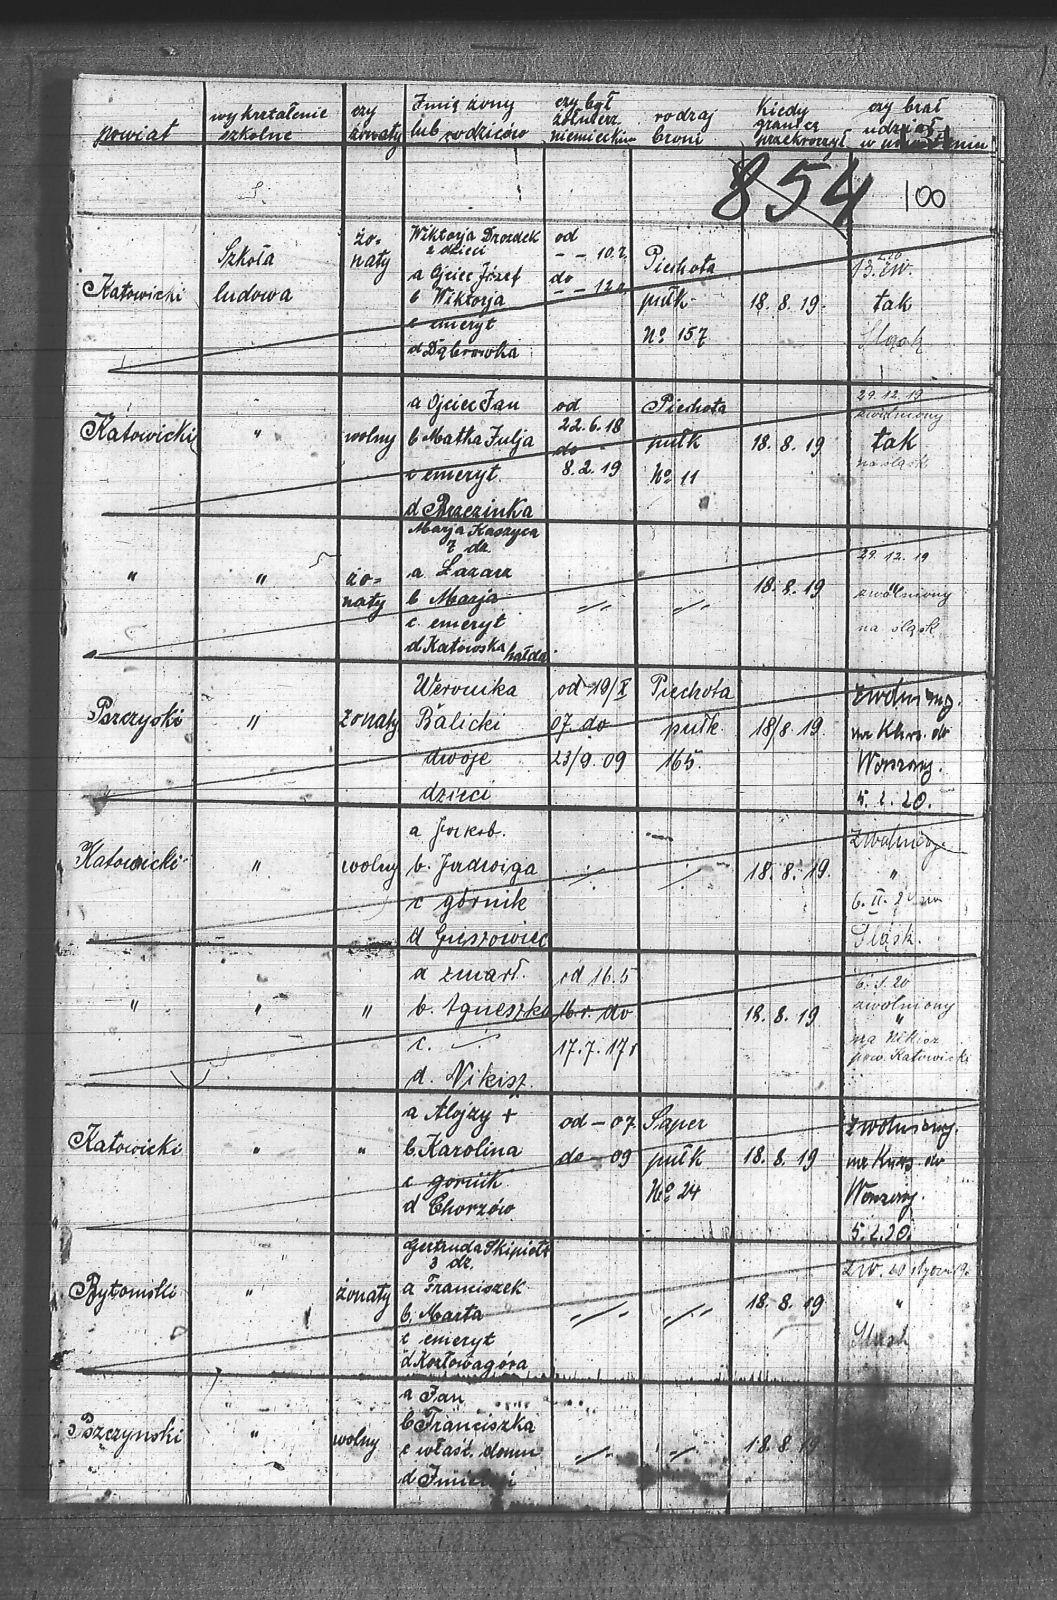 powiat
wykształcenie
szkolne
czy
żonaty
Imię żony
lub rodziców
czy był
żołnierz
niemieckim
rodzaj
broni
Kiedy
granicę
przekroczył
czy brał
udział
w
854 100
Katowicki
Szkoła
ludowa
żo=
naty
Wiktorja Drozdek
2 dzieci
a Ojciec Józef
b Wiktorja
c emeryt
d Dąbrowka
od
- - 10.7.
do
Piechota
pułk
No 157
18.8.19.
13. zw.
tak
Śląsk
Katowicki
"
wolny
a Ojciec Jan
b Matka Julja
c emeryt.
d Brzezinka
od
22.6.18
do
8.2.19
Piechota
pułk
No 11
18.8.19
29.12.19
zwolniony
tak
na śląsk
"
"
żo=
naty
Marja Kaszyca
7 dz.
a Łazarz
b Marja
c emeryt
d Katowska hałda
-//-
-//-
18.8.19
29.12.19
"
zwolniony
na śląsk
Pszczyski
"
żonaty
Weronika
Balicki
dwoje
dzieci
od 19/X
07. do
23/9.09
Piechota
pułk
165.
18/8.19.
na Kurs. do
Warszawy.
5.2.20.
Katowicki
"
wolny
a Jakob.
b. Jadwiga
c górnik
d Giszowiec
18.8.19.
"
6.II.20 na
Śląsk.
"
"
"
a zmarł.
b. Agneszka
c.
d. Nikisz
od 16.5
16.r. do
17.7.17r
18.8.19
6.1.20
zwolniony
"
na Nikisz
pow. Katowicki
Katowicki
"
"
a Alojzy +
b. Karolina
c gornik
d Chorzów
od - 07
do - 09
Saper
pułk
No 24
18.8.19
na Kurs. do
Warszawy.
5.2.20.
Bytomski
"
żonaty
Gertruda Skipioł
3 dz.
a Franciszek
b. Marta
c emeryt
d Kozłowagóra
-//-
-//-
18.8.19
"
Śląsk
Pszczynski
"
wolny
a Jan
b Franciszka
c właść. domu
d
-//-
-//-
18.8.19